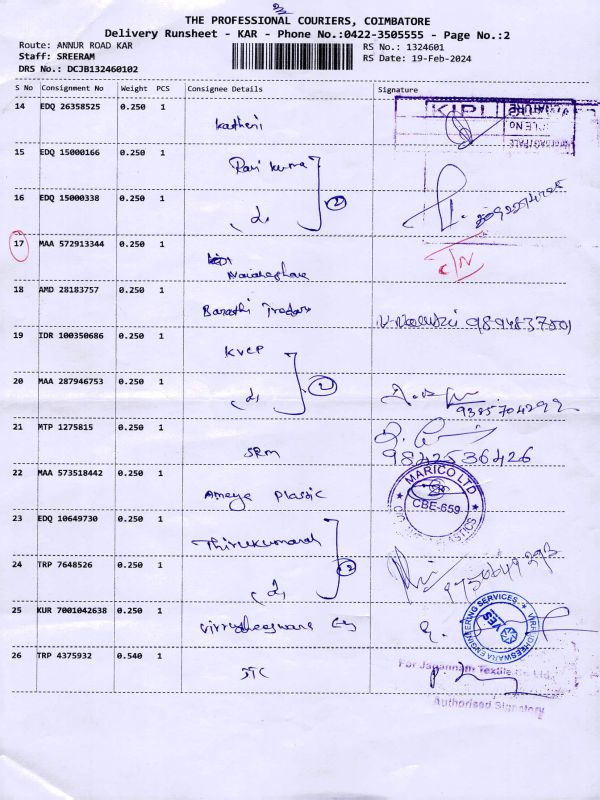 2/2
THE PROFESSIONAL COURIERS, COIMBATORE
Delivery Runsheet - KAR - Phone No.:0422-3505555 - Page No.:2
Route: ANNUR ROAD KAR RS No.: 1324601
Staff: SREERAM RS Date: 19-Feb-2024
DRS No.: DCJB132460102
S No Consignment No Weight PCS Consignee Details Signature
14 EDQ 26358525 0.250 1
15 EDQ 15000166 0.250 1 Ravi kuma
16 EDQ 15000338 0.250 1 2
17 MAA 572913344 0.250 1
18 AMD 28183757 0.250 1 Barathi Traders 9894837501
19 IDR 100350686 0.250 1 KVCP
20 MAA 287946753 0.250 1 2 9385704292
21 MTP 1275815 0.250 1 SRM 9842536426
22 MAA 573518442 0.250 1 Ameya Plastic MARICO LTD CBE-659
23 EDQ 10649730 0.250 1 Thirukumaran
24 TRP 7648526 0.250 1 2
25 KUR 7001042638 0.250 1 YES ENGINEERING SERVICES
26 TRP 4375932 0.540 1 JTC For Jagannath Textile Co Ltd.
Authorised Signatory